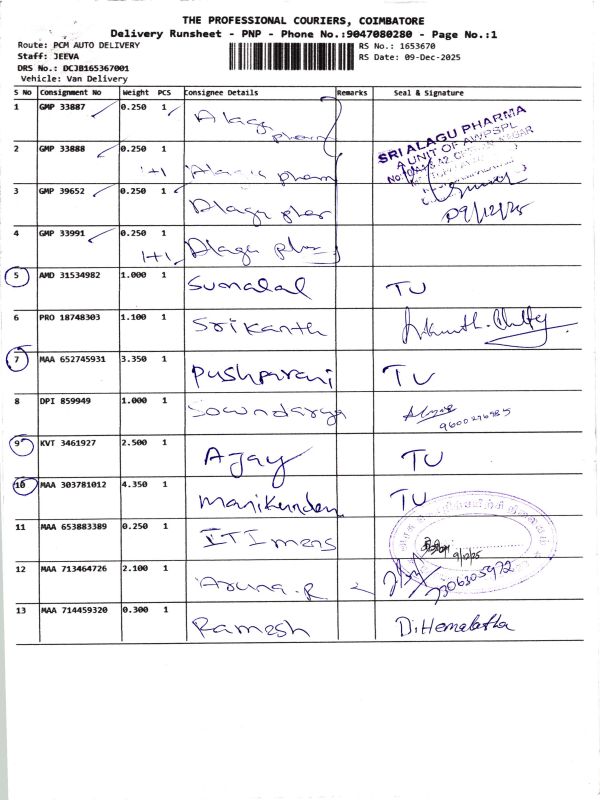 THE PROFESSIONAL COURIERS, COIMBATORE
Delivery Runsheet - PNP - Phone No.:9047080280 - Page No.:1
Route: PCM AUTO DELIVERY
RS No.: 1653670
Staff: JEEVA
RS Date: 09-Dec-2025
DRS No.: DCJB165367001
Vehicle: Van Delivery
S No Consignment No Weight PCS Consignee Details Remarks Seal & Signature
1 GMP 33887 0.250 1 Alagu pharm
SRI ALAGU PHARMA
A UNIT OF AWPSPL
2 GMP 33888 0.250 1 1+1 Alagu pharm
3 GMP 39652 0.250 1 Alagu phar
09/12/25
4 GMP 33991 0.250 1 1+1 Alagu phar
5 AMD 31534982 1.000 1 Sumalal TU
6 PRO 18748303 1.100 1 Srikanth
7 MAA 652745931 3.350 1 Pushparani TU
8 DPI 859949 1.000 1 Sowndarya
9 KVT 3461927 2.500 1 Ajay TU
10 MAA 303781012 4.350 1 Manikandan TU
11 MAA 653883389 0.250 1 ITI mens 9/12/25
12 MAA 713464726 2.100 1 Aruna.R 7306305972
13 MAA 714459320 0.300 1 Ramesh D.Hemalatha